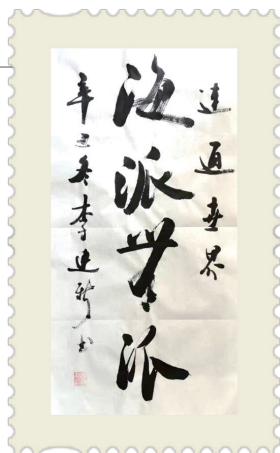 連通世界
海派無派
辛丑冬李建新书